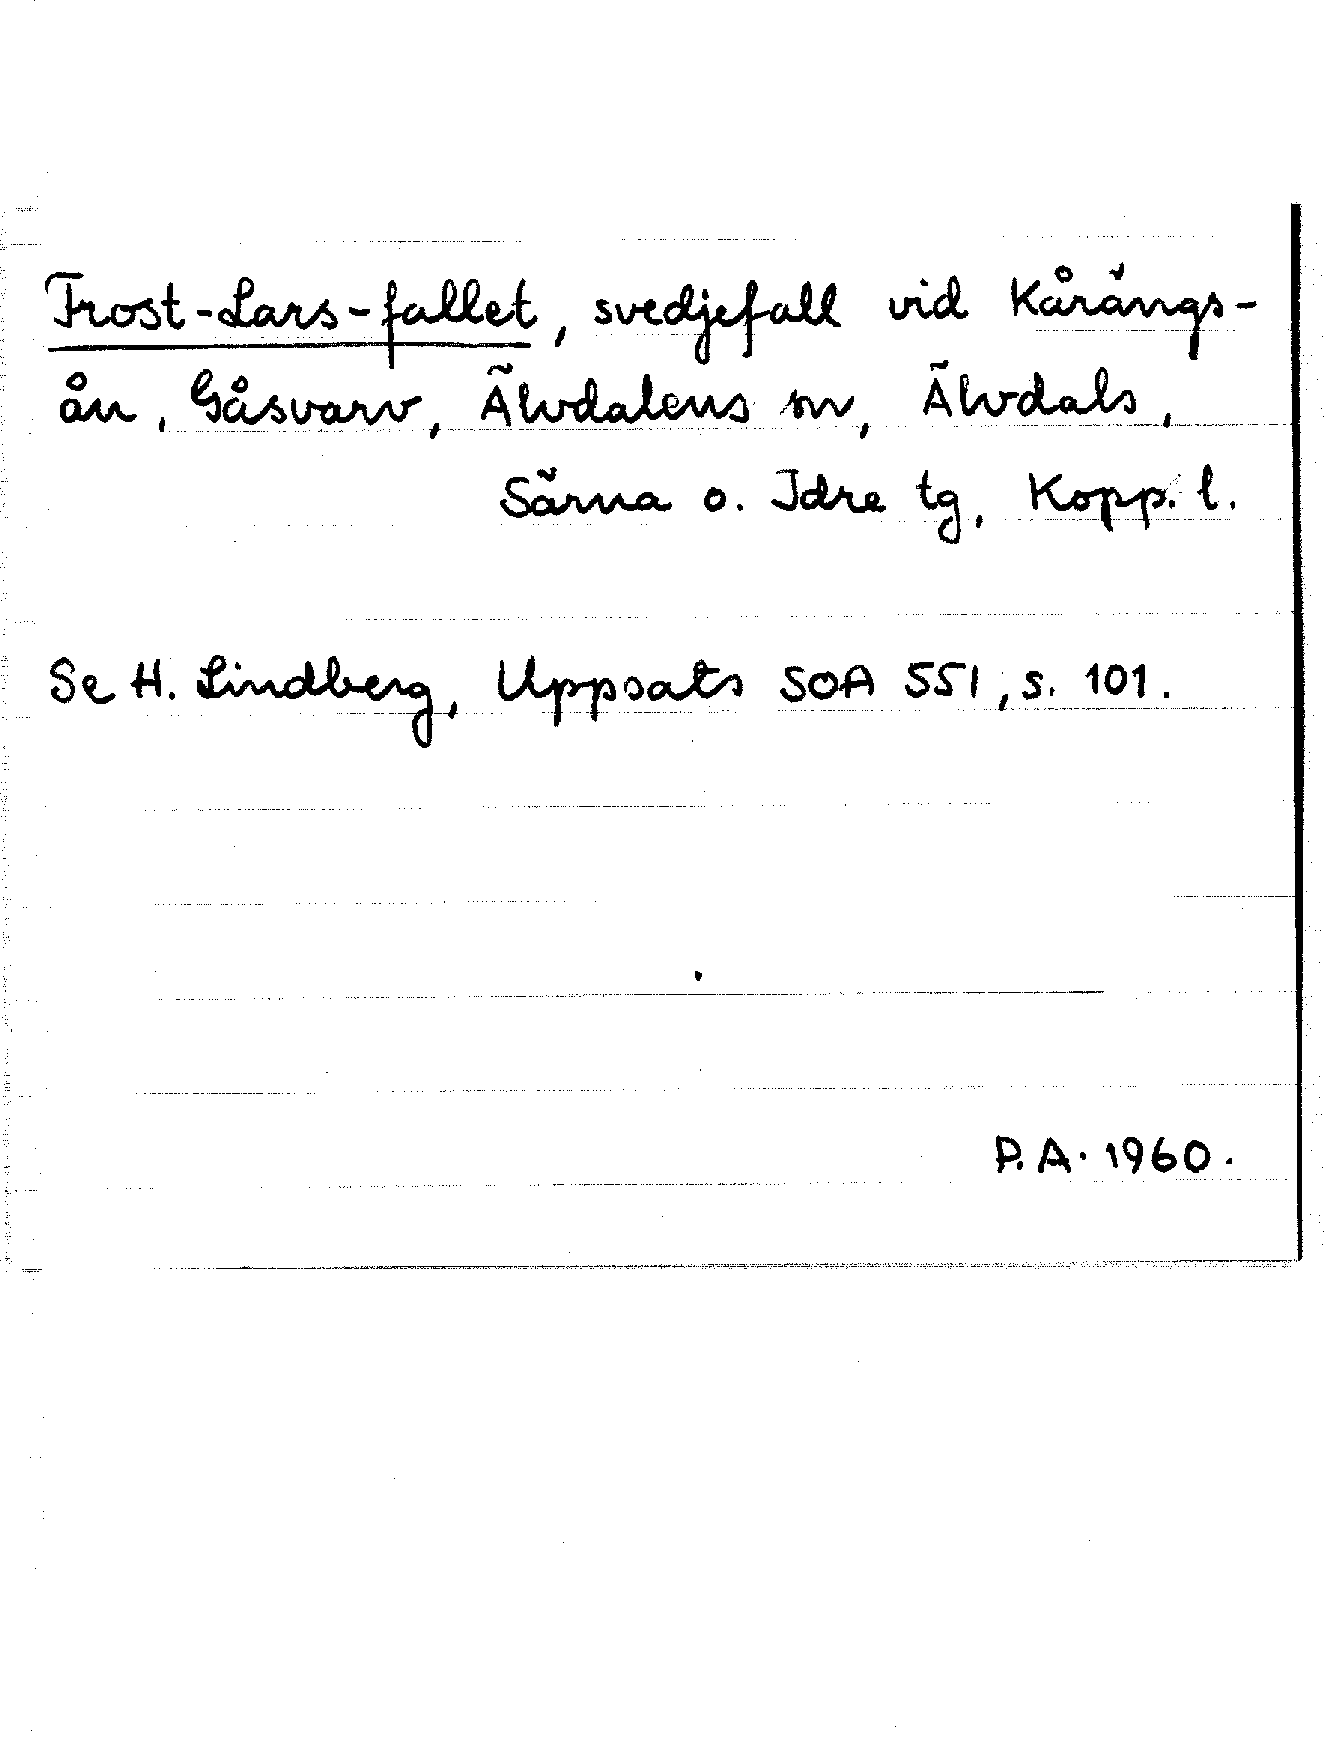 Frost-Lars-fallet, svedjefall vid Kårängs-
ån, Gåsvarv, Älvdalens sn, Älvdals,
Särna o. Idre tg, Kopp. l.
Se H. Lindberg, Uppsats SOA 551, s. 101.
P.A. 1960.